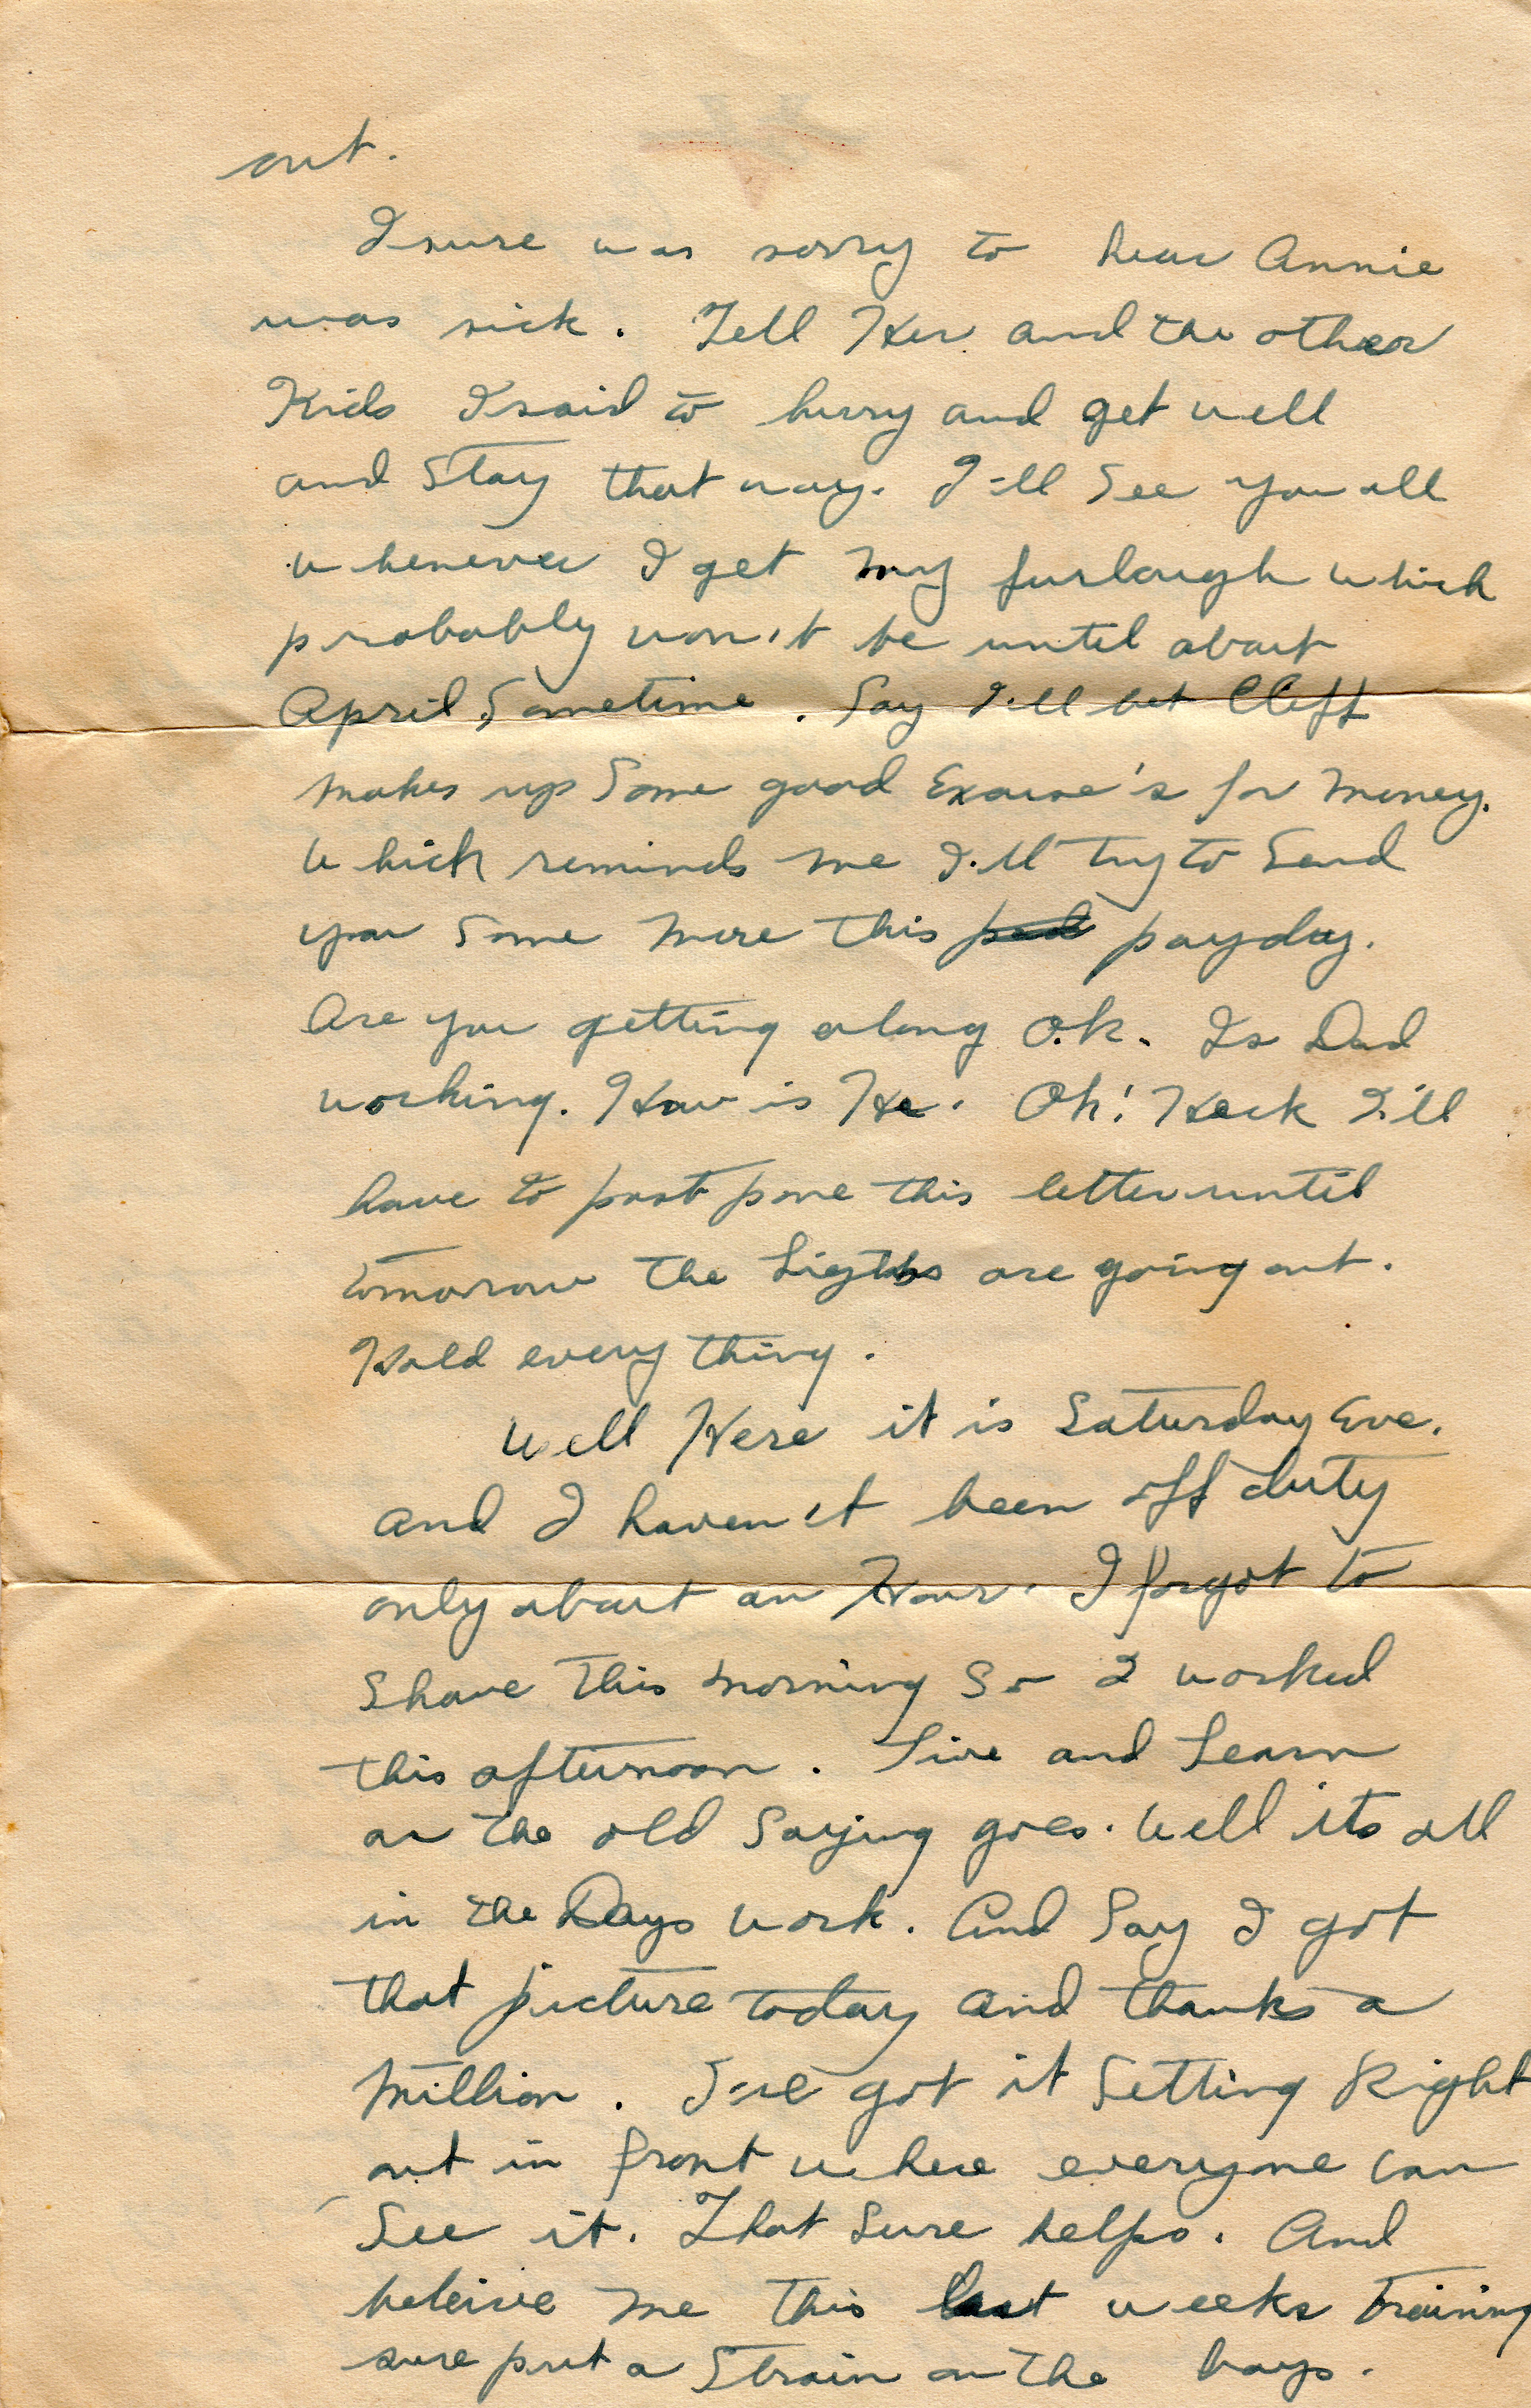 out.
I sure was sorry to hear Annie
was sick. Tell Her and the other
Kids I said to hurry and get well
and Stay that way. I'll See you all
whenever I get my furlough which
probably won't be until about
April Sometime. Say I'll bet Cliff
makes up Some good Excuse's for money.
Which reminds me I'll try to Send
you Some more this payday.
Are you getting along O.k. Is Dad
working. How is He. Oh! Heck I'll
have to post pone this letter until
tomorrow the Ligths are going out.
Hold every thing.
Well Here it is Saturday Eve.
and I haven't been off duty
only about an Hour. I forgot to
Shave this morning So I worked
this afternoon. Live and Learn
as the old Saying goes. Well its all
in the Days work. And Say I got
that picture today and thanks a
Million. I've got it Setting Right
out in front where everyone can
See it. That Sure helps. And
beleive me this last weeks training
sure put a Strain on the boys.